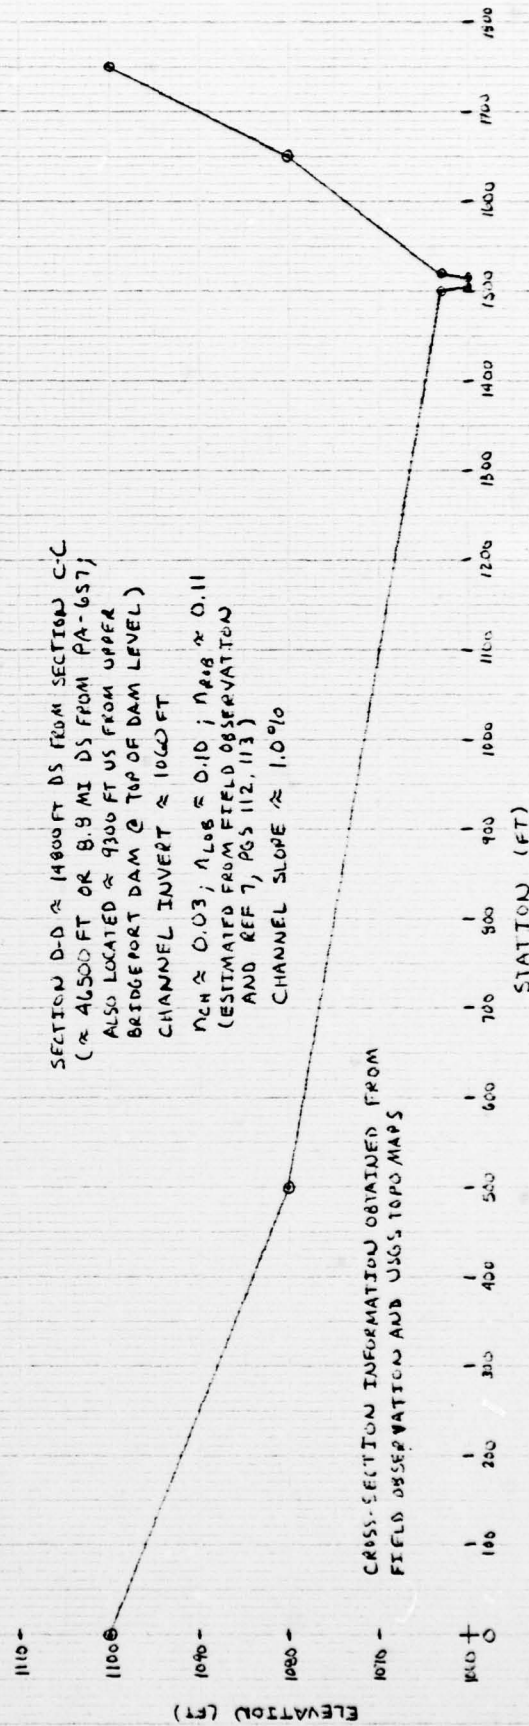 SECTION D-D ≈ 14800 FT DS FROM SECTION C-C
(≈ 46500 FT OR 8.8 MI DS FROM PA-657;
ALSO LOCATED ≈ 9300 FT US FROM UPPER
BRIDGEPORT DAM @ TOP OF DAM LEVEL)
CHANNEL INVERT ≈ 1060 FT
nCH ≈ 0.03; nLOB ≈ 0.10; nROB ≈ 0.11
(ESTIMATED FROM FIELD OBSERVATION
AND REF 7, PGS 112, 113)
CHANNEL SLOPE ≈ 1.0%
CROSS-SECTION INFORMATION OBTAINED FROM
FIELD OBSERVATION AND USGS TOPO MAPS
ELEVATION (FT)
1110
1100
1090
1080
1070
1060
0
100
200
300
400
500
600
700
800
900
1000
1100
1200
1300
1400
1500
1600
1700
1800
STATION (FT)